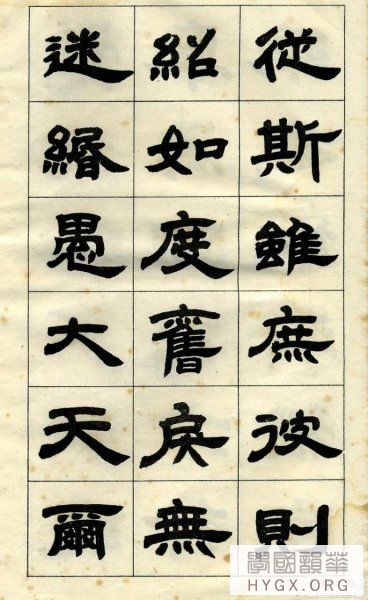 從斯雖庶彼則
紹如度舊戾無
迷緡愚大天爾
華韻國學
HYGX.ORG